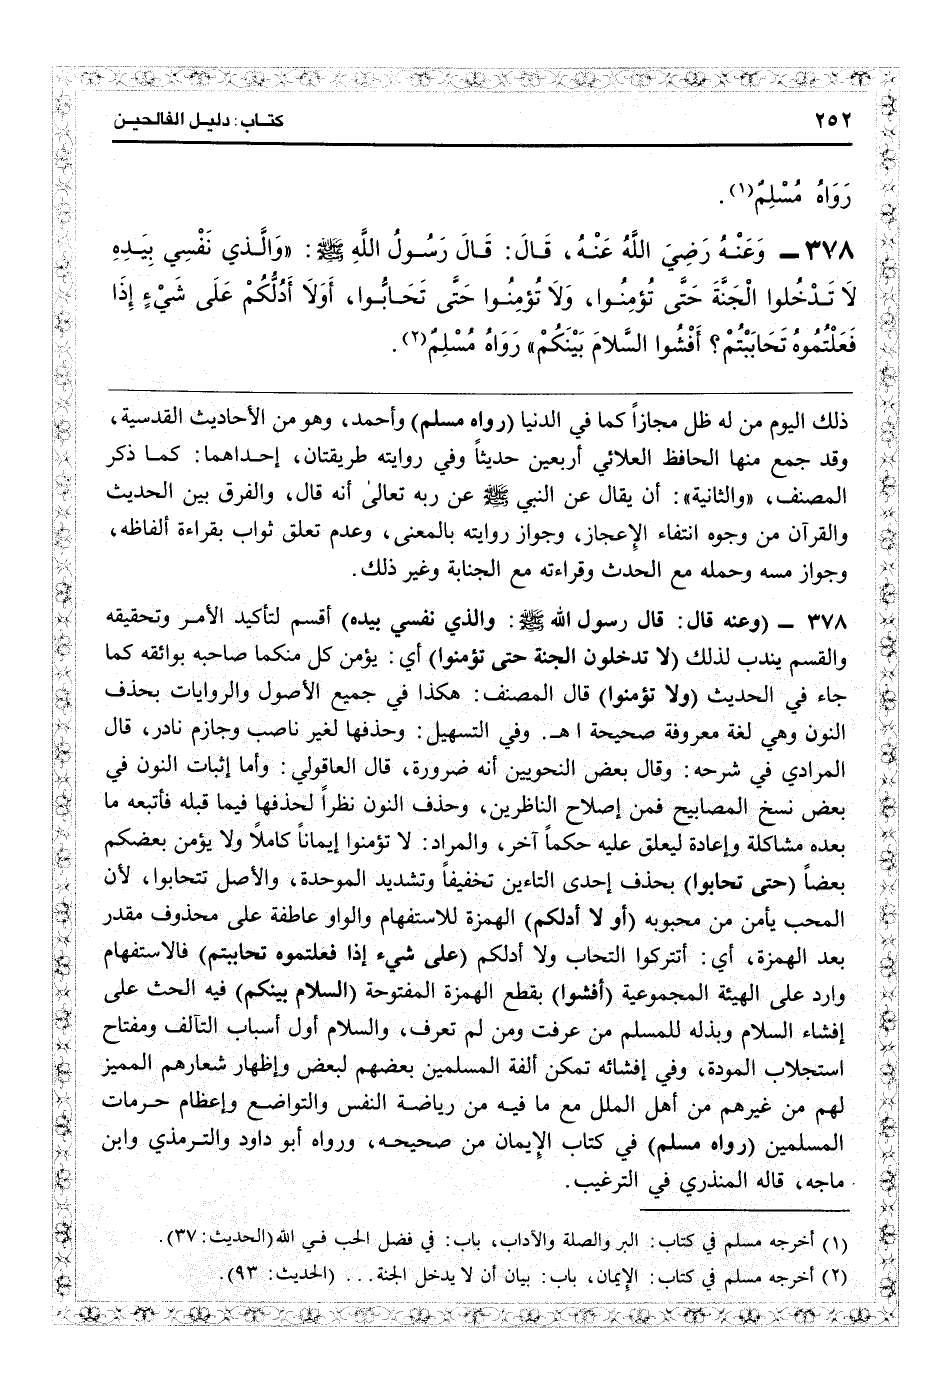 ٢٥٢ كتاب: دليل الفالحين
رَوَاهُ مُسْلِمٌ(١).
٣٧٨ ـ وَعَنْهُ رَضِيَ اللَّهُ عَنْهُ، قَالَ: قَالَ رَسُولُ اللَّهِ ﷺ: «وَالَّذي نَفْسِي بِيَدِهِ
لَا تَدْخُلوا الْجَنَّةَ حَتَّى تُؤمِنُوا، وَلَا تُؤمِنُوا حَتَّى تَحَابُّوا، أَوَلَا أَدُلُّكُمْ عَلَى شَيْءٍ إِذَا
فَعَلْتُمُوهُ تَحَابَبْتُمْ؟ أَفْشُوا السَّلامَ بَيْنَكُمْ» رَوَاهُ مُسْلِمٌ(٢).
ذلك اليوم من له ظل مجازاً كما في الدنيا (رواه مسلم) وأحمد، وهو من الأحاديث القدسية،
وقد جمع منها الحافظ العلائي أربعين حديثاً وفي روايته طريقتان، إحداهما: كما ذكر
المصنف، «والثانية»: أن يقال عن النبي ﷺ عن ربه تعالىٰ أنه قال، والفرق بين الحديث
والقرآن من وجوه انتفاء الإعجاز، وجواز روايته بالمعنى، وعدم تعلق ثواب بقراءة ألفاظه،
وجواز مسه وحمله مع الحدث وقراءته مع الجنابة وغير ذلك.
٣٧٨ ـ (وعنه قال: قال رسول الله ﷺ: والذي نفسي بيده) أقسم لتأكيد الأمر وتحقيقه
والقسم يندب لذلك (لا تدخلون الجنة حتى تؤمنوا) أي: يؤمن كل منكما صاحبه بوائقه كما
جاء في الحديث (ولا تؤمنوا) قال المصنف: هكذا في جميع الأصول والروايات بحذف
النون وهي لغة معروفة صحيحة ا هـ. وفي التسهيل: وحذفها لغير ناصب وجازم نادر، قال
المرادي في شرحه: وقال بعض النحويين أنه ضرورة، قال العاقولي: وأما إثبات النون في
بعض نسخ المصابيح فمن إصلاح الناظرين، وحذف النون نظراً لحذفها فيما قبله فأتبعه ما
بعده مشاكلة وإعادة ليعلق عليه حكماً آخر، والمراد: لا تؤمنوا إيماناً كاملاً ولا يؤمن بعضكم
بعضاً (حتى تحابوا) بحذف إحدى التاءين تخفيفاً وتشديد الموحدة، والأصل تتحابوا، لأن
المحب يأمن من محبوبه (أو لا أدلكم) الهمزة للاستفهام والواو عاطفة على محذوف مقدر
بعد الهمزة، أي: أتتركوا التحاب ولا أدلكم (على شيء إذا فعلتموه تحاببتم) فالاستفهام
وارد على الهيئة المجموعية (أفشوا) بقطع الهمزة المفتوحة (السلام بينكم) فيه الحث على
إفشاء السلام وبذله للمسلم من عرفت ومن لم تعرف، والسلام أول أسباب التآلف ومفتاح
استجلاب المودة، وفي إفشائه تمكن ألفة المسلمين بعضهم لبعض وإظهار شعارهم المميز
لهم من غيرهم من أهل الملل مع ما فيه من رياضة النفس والتواضع وإعظام حرمات
المسلمين (رواه مسلم) في كتاب الإيمان من صحيحه، ورواه أبو داود والترمذي وابن
ماجه، قاله المنذري في الترغيب.
(١) أخرجه مسلم في كتاب: البر والصلة والآداب، باب: في فضل الحب في الله (الحديث: ٣٧).
(٢) أخرجه مسلم في كتاب: الإيمان، باب: بيان أن لا يدخل الجنة... (الحديث: ٩٣).